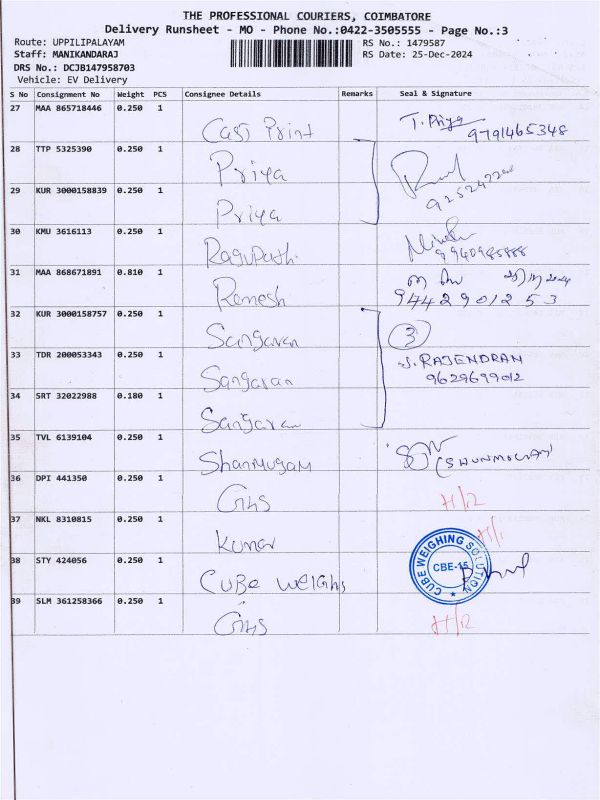 THE PROFESSIONAL COURIERS, COIMBATORE
Delivery Runsheet - MO - Phone No.:0422-3505555 - Page No.:3
Route: UPPILIPALAYAM
Staff: MANIKANDARAJ
DRS No.: DCJB147958703
Vehicle: EV Delivery
RS No.: 1479587
RS Date: 25-Dec-2024
S No Consignment No Weight PCS Consignee Details Remarks Seal & Signature
27 MAA 865718446 0.250 1 Print T. Priya
9791465348
28 TTP 5325390 0.250 1 Priya
29 KUR 3000158839 0.250 1 Priya
30 KMU 3616113 0.250 1 Ragupathi
31 MAA 868671891 0.810 1 Remesh
9442901253
32 KUR 3000158757 0.250 1 Sangaran 3
33 TDR 200053343 0.250 1 Sangaran J. RAJENDRAN
9629699012
34 SRT 32022988 0.180 1 Sangaran
35 TVL 6139104 0.250 1 Shanmugam
36 DPI 441350 0.250 1
37 NKL 8310815 0.250 1 Kumar
38 STY 424056 0.250 1 CUBE Weighs CUBE WEIGHING SOLUTION
CBE-15
39 SLM 361258366 0.250 1